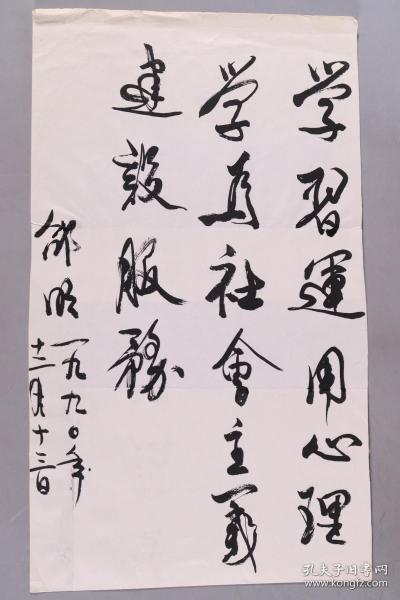 学習運用心理
学為社會主義
建設服務
一九九〇年
十二月十三日
孔夫子旧书网
www.kongfz.com